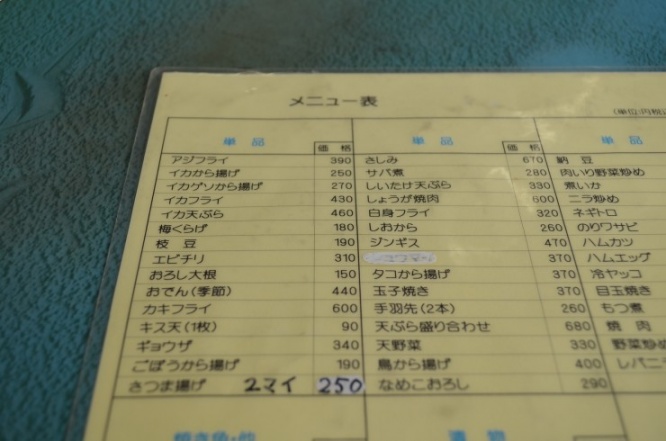 メニュー表
(単位:円税込
単品 価格 単品 価格 単品
アジフライ 390 さしみ 670 納豆
イカから揚げ 250 サバ煮 280 肉いり野菜炒め
イカゲソから揚げ 270 しいたけ天ぷら 330 煮いか
イカフライ 430 しょうが焼肉 600 ニラ炒め
イカ天ぷら 460 白身フライ 320 ネギトロ
梅くらげ 180 しおから 260 のりワサビ
枝豆 190 ジンギス 470 ハムカツ
エビチリ 310 シュウマイ 370 ハムエッグ
おろし大根 150 タコから揚げ 370 冷ヤッコ
おでん(季節) 440 玉子焼き 370 目玉焼き
カキフライ 600 手羽先(2本) 260 もつ煮
キス天(1枚) 90 天ぷら盛り合わせ 680 焼肉
ギョウザ 340 天野菜 330 野菜炒め
ごぼうから揚げ 190 鳥から揚げ 400 レバニラ
さつま揚げ 2マイ 250 なめこおろし 290
焼き魚・他 漬物